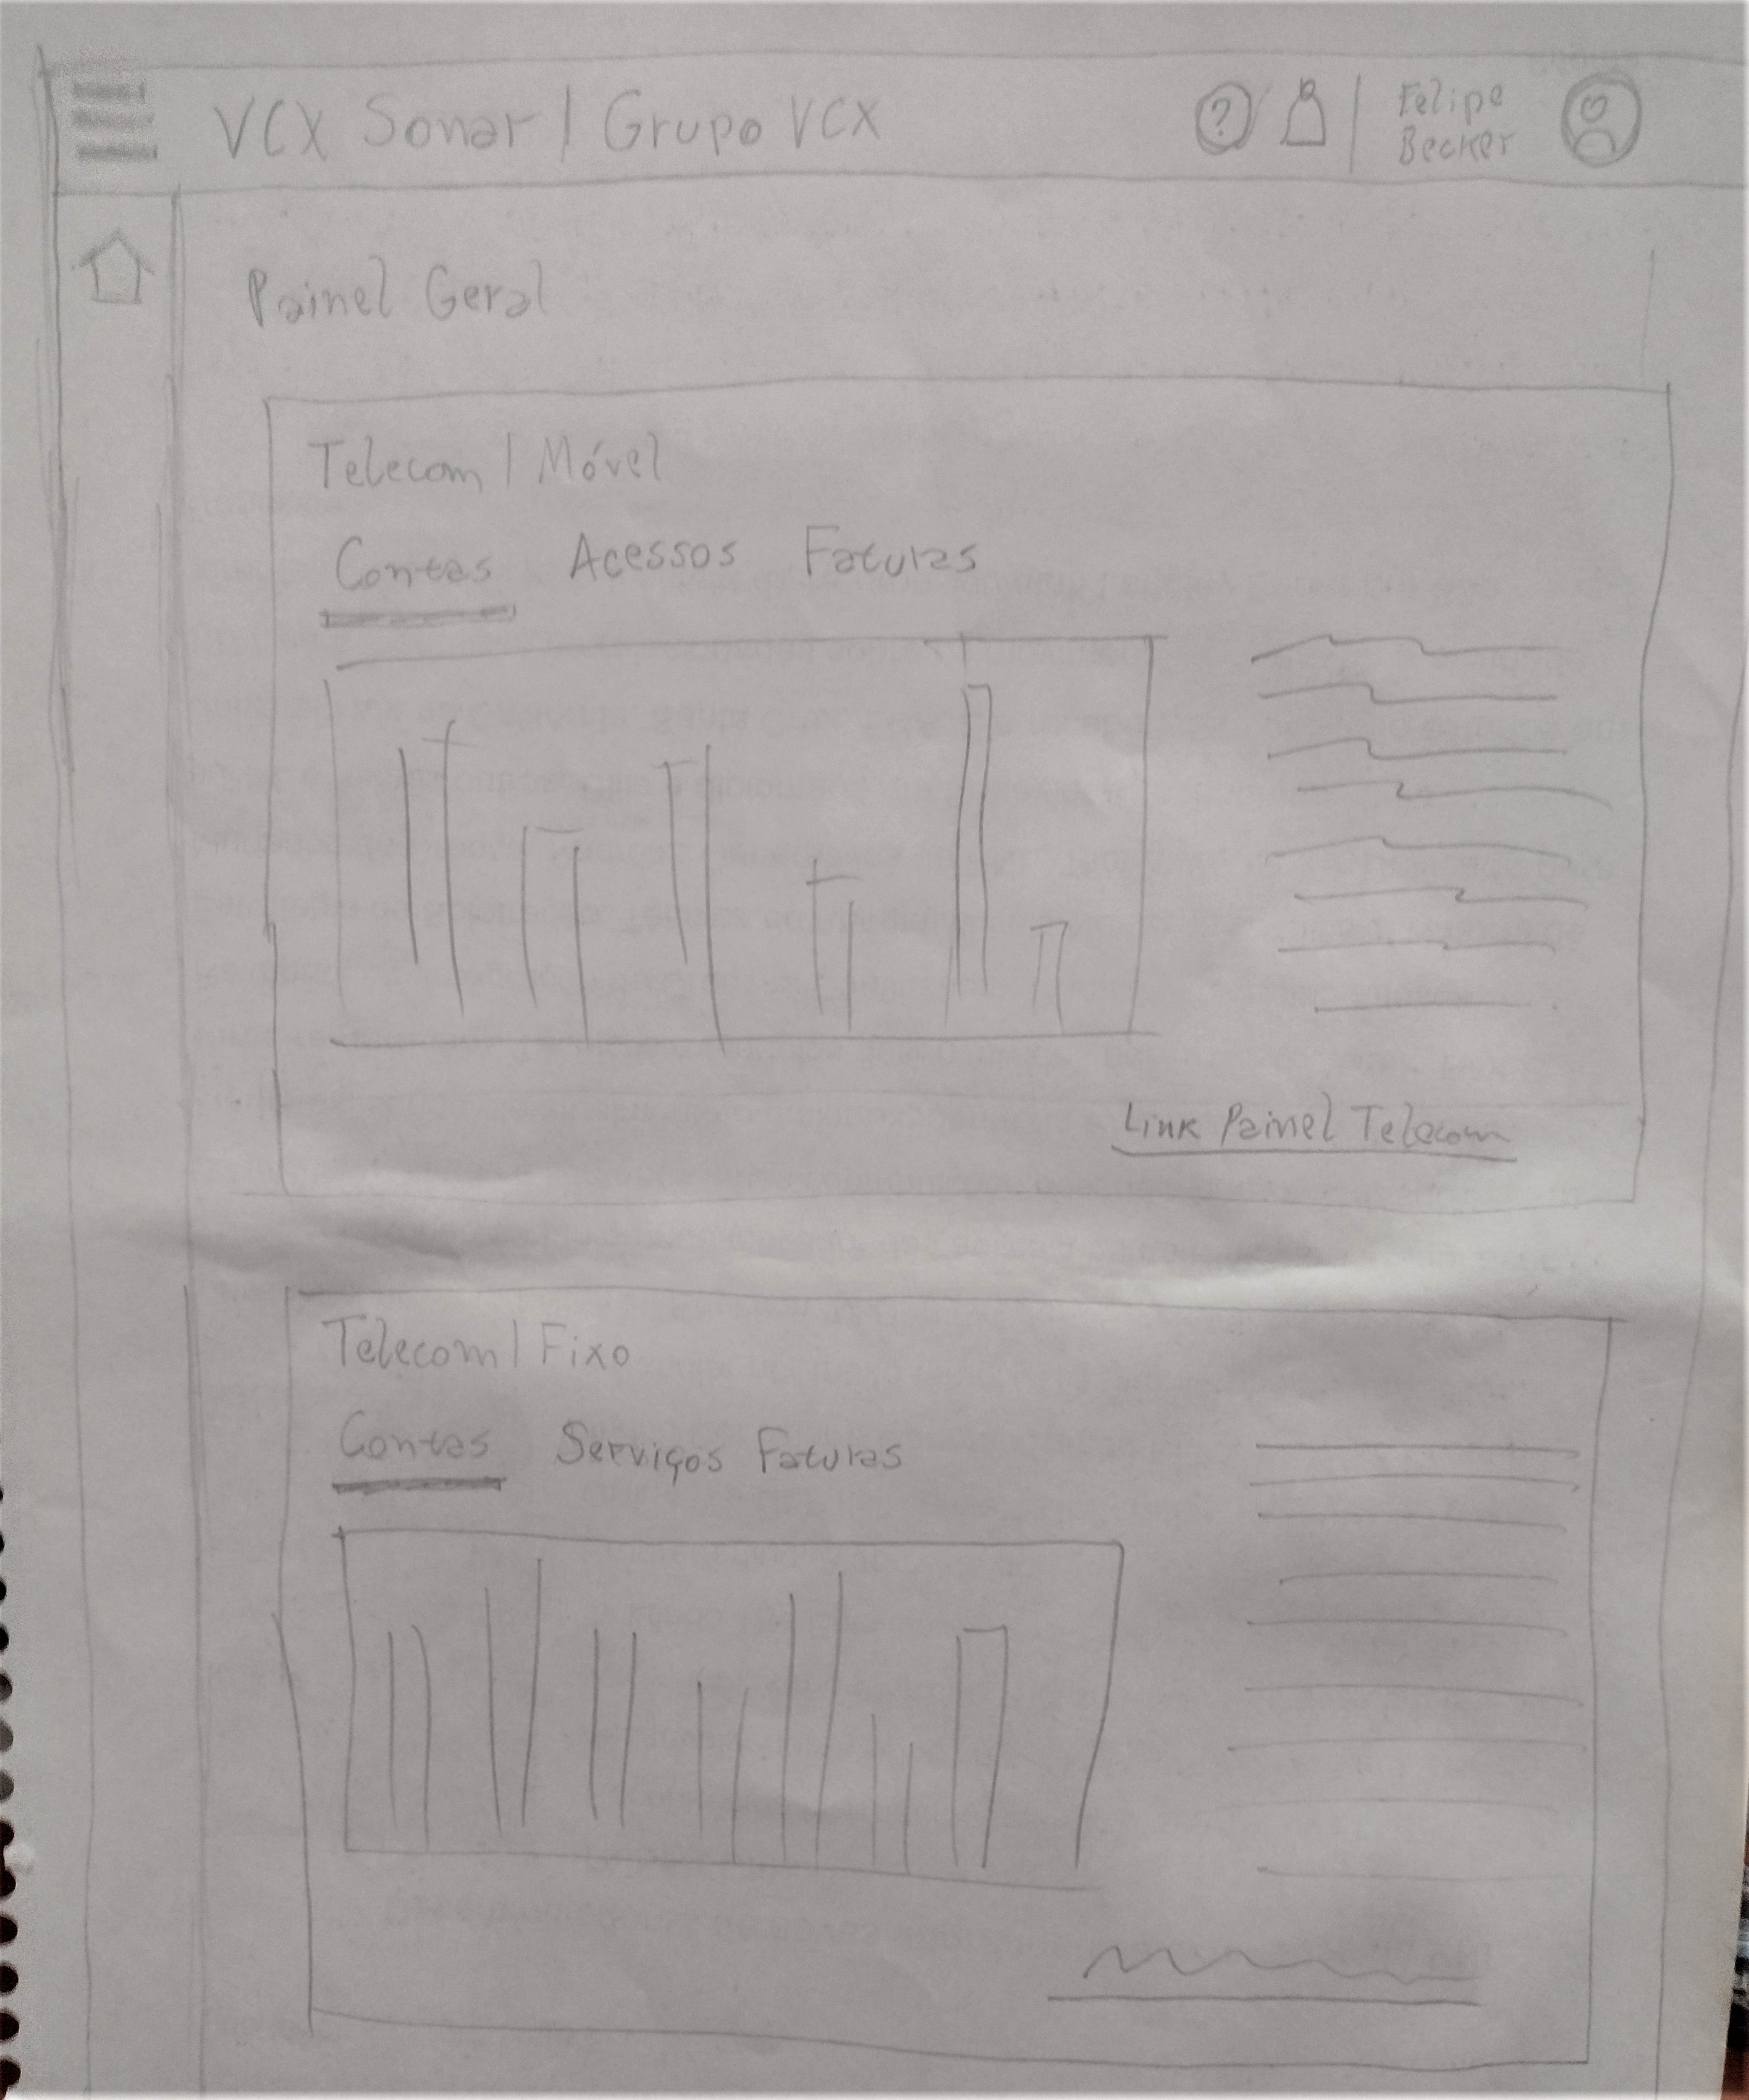 VCX Sonar | Grupo VCX
? | Felipe
Becker
Painel Geral
Telecom | Móvel
Contas Acessos Faturas
Link Painel Telecom
Telecom | Fixo
Contas Serviços Faturas